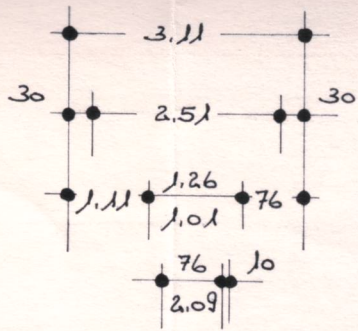 3,11
30 2,51 30
1,11 1,26 76
1,01
76 10
2,09